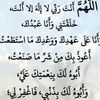 اللَّهُمَّ أَنْتَ رَبِّي لَا إِلَهَ إِلَّا أَنْتَ،
خَلَقْتَنِي وَأَنَا عَبْدُكَ،
وَأَنَا عَلَى عَهْدِكَ وَوَعْدِكَ مَا اسْتَطَعْتُ
أَعُوذُ بِكَ مِنْ شَرِّ مَا صَنَعْتُ،
أَبُوءُ لَكَ بِنِعْمَتِكَ عَلَيَّ،
وَأَبُوءُ لَكَ بِذَنْبِي، فَاغْفِرْ لِي؛